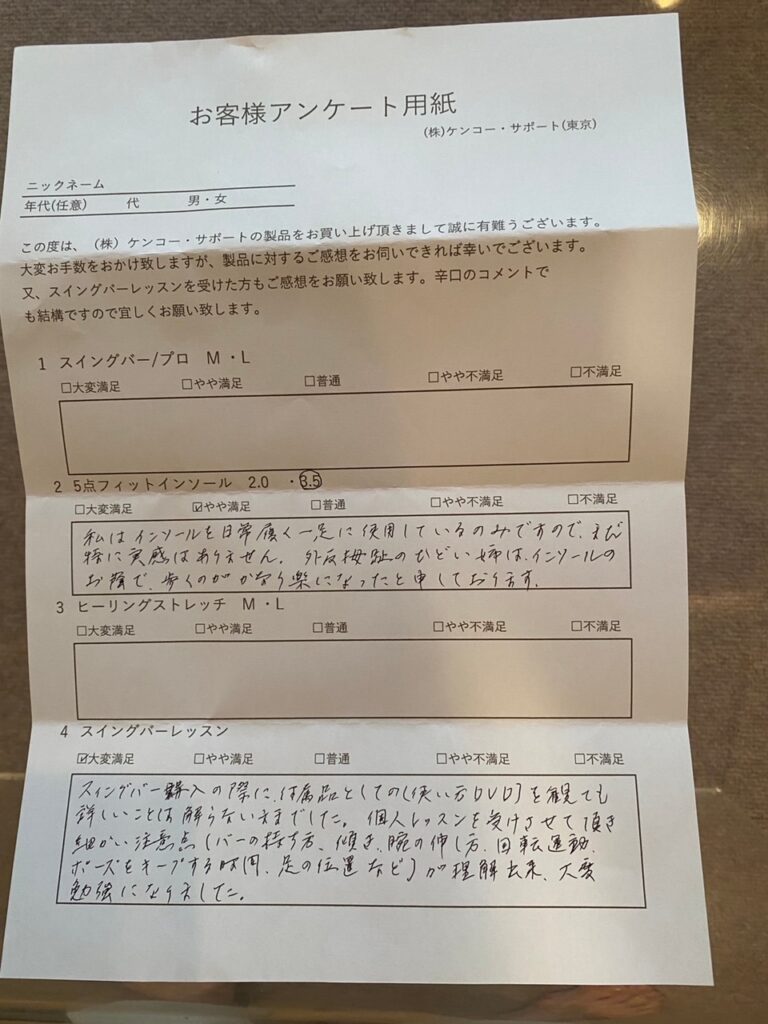 お客様アンケート用紙
(株)ケンコー・サポート(東京)
ニックネーム
年代(任意) 代 男・女
この度は、（株）ケンコー・サポートの製品をお買い上げ頂きまして誠に有難うございます。
大変お手数をおかけ致しますが、製品に対するご感想をお伺いできれば幸いでございます。
又、スイングバーレッスンを受けた方もご感想をお願い致します。辛口のコメントで
も結構ですので宜しくお願い致します。
1 スイングバー/プロ M・L
□大変満足 □やや満足 □普通 □やや不満足 □不満足
2 5点フィットインソール 2.0 ・3.5
□大変満足 ☑やや満足 □普通 □やや不満足 □不満足
私はインソールを日常履く一足に使用しているのみですので、まだ
特に実感はありません。外反拇趾のひどい姉は、インソールの
お蔭で、歩くのがかなり楽になったと申しております。
3 ヒーリングストレッチ M・L
□大変満足 □やや満足 □普通 □やや不満足 □不満足
4 スイングバーレッスン
☑大変満足 □やや満足 □普通 □やや不満足 □不満足
スイングバー購入の際に、付属品としての(使い方DVD)を観ても
詳しいことは解らないままでした。個人レッスンを受けさせて頂き
細かい注意点(バーの持ち方、傾き、腕の伸し方、回転運動、
ポーズをキープする時間、足の位置など)が理解出来、大変
勉強になりました。